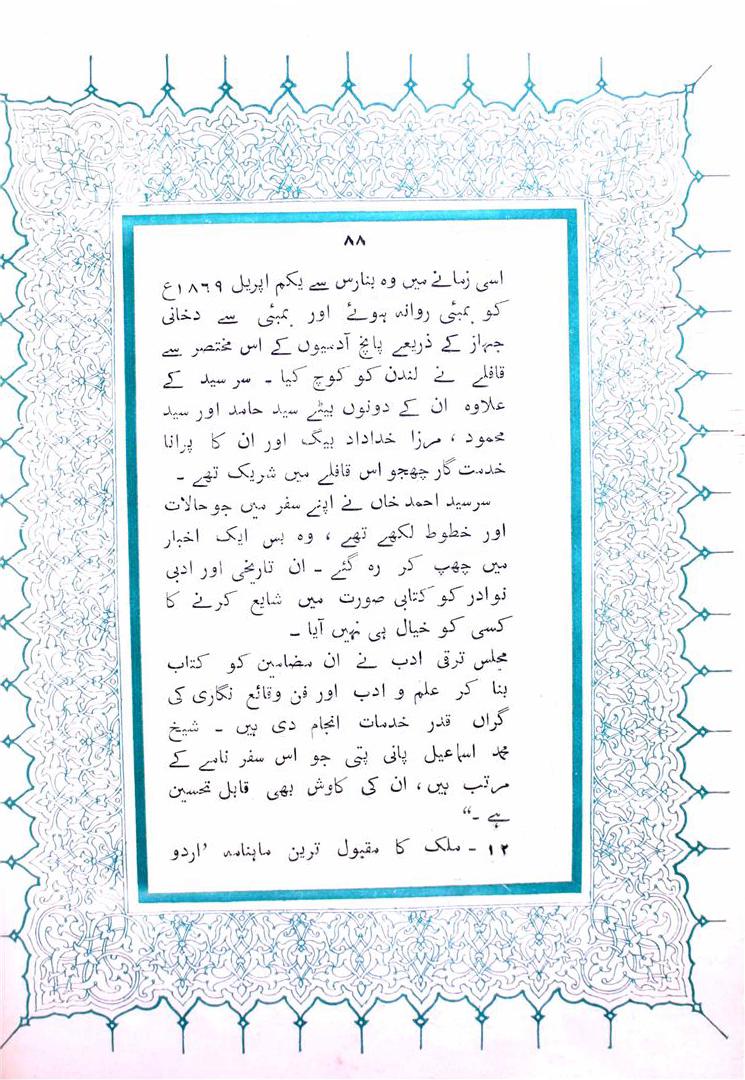 ۸۸
اسی زمانے میں وہ بنارس سے یکم اپریل ۱۸۶۹ع
کو بمبئی روانہ ہوئے اور بمبئی سے دخانی
جہاز کے ذریعے پانچ آدمیوں کے اس مختصر سے
قافلے نے لندن کو کوچ کیا ۔ سر سید کے
علاوہ ان کے دونوں بیٹے سید حامد اور سید
محمود ، مرزا خداداد بیگ اور ان کا پرانا
خدمت گار چھجو اس قافلے میں شریک تھے ۔
سرسید احمد خاں نے اپنے سفر میں جو حالات
اور خطوط لکھے تھے ، وہ بس ایک اخبار
میں چھپ کر رہ گئے ۔ ان تاریخی اور ادبی
نوادر کو کتابی صورت میں شایع کرنے کا
کسی کو خیال ہی نہیں آیا ۔
مجلس ترقی ادب نے ان مضامین کو کتاب
بنا کر علم و ادب اور فن وقائع نگاری کی
گراں قدر خدمات انجام دی ہیں ۔ شیخ
محمد اسماعیل پانی پتی جو اس سفر نامے کے
مرتب ہیں ، ان کی کاوش بھی قابل تحسین
ہے ۔“
۱۲ ۔ ملک کا مقبول ترین ماہنامہ ’اردو